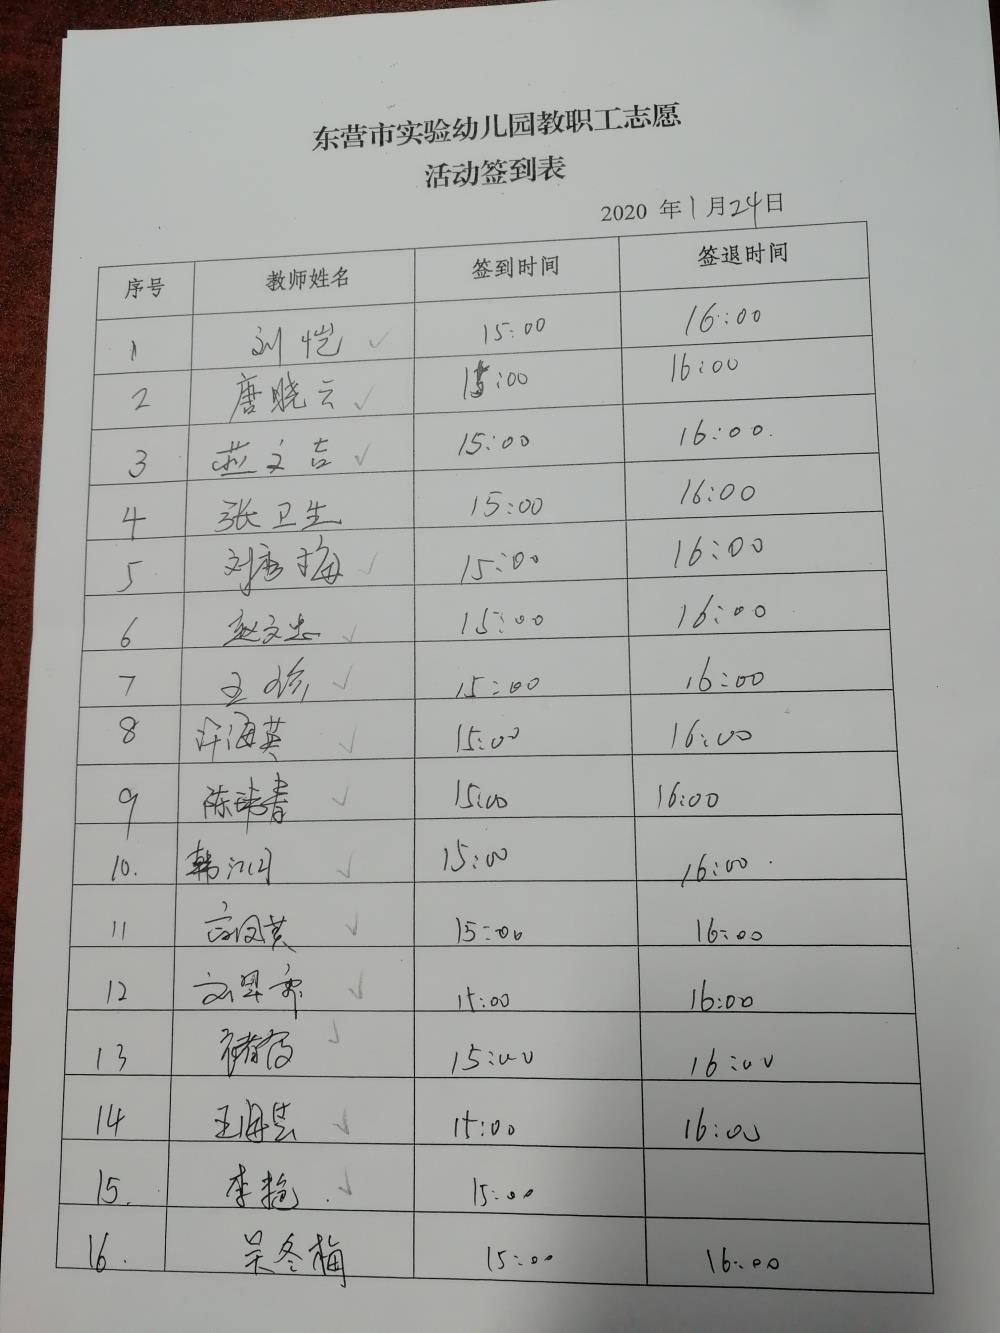 东营市实验幼儿园教职工志愿
活动签到表
2020 年1月24日
序号 教师姓名 签到时间 签退时间
1 刘恺 15:00 16:00
2 唐晓云 15:00 16:00
3 文吉 15:00 16:00.
4 张卫生 15:00 16:00
5 刘秀梅 15:00 16:00
6 赵文忠 15:00 16:00
7 王 15:00 16:00
8 许海英 15:00 16:00
9 陈青 15:00 16:00
10. 韩 15:00 16:00
11 高凤英 15:00 16:00
12 15:00 16:00
13 15:00 16:00
14 王海芸 15:00 16:00
15. 李艳 15:00
16. 吴冬梅 15:00 16:00